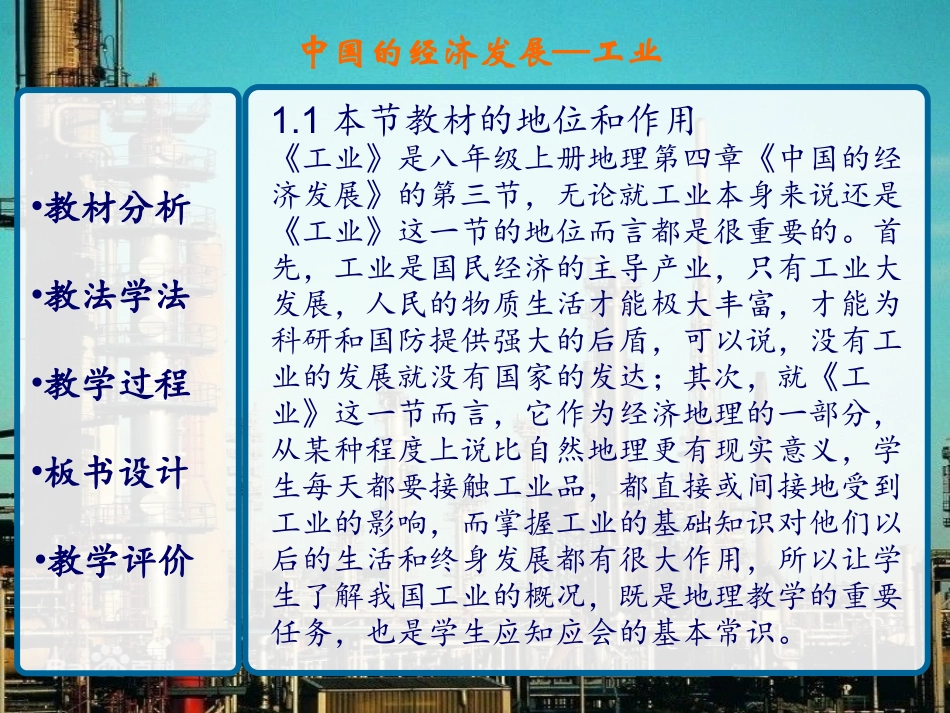 中国的经济发展—工业
•教材分析
•教法学法
•教学过程
•板书设计
•教学评价
1.1 本节教材的地位和作用
《工业》是八年级上册地理第四章《中国的经
济发展》的第三节，无论就工业本身来说还是
《工业》这一节的地位而言都是很重要的。首
先，工业是国民经济的主导产业，只有工业大
发展，人民的物质生活才能极大丰富，才能为
科研和国防提供强大的后盾，可以说，没有工
业的发展就没有国家的发达；其次，就《工
业》这一节而言，它作为经济地理的一部分，
从某种程度上说比自然地理更有现实意义，学
生每天都要接触工业品，都直接或间接地受到
工业的影响，而掌握工业的基础知识对他们以
后的生活和终身发展都有很大作用，所以让学
生了解我国工业的概况，既是地理教学的重要
任务，也是学生应知应会的基本常识。